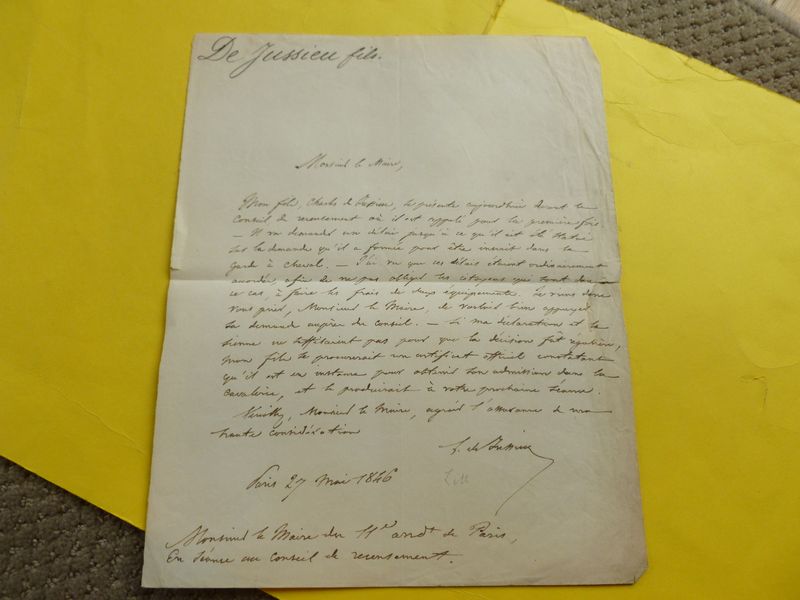 De Jussieu fils.
Monsieur le Maire,
Mon fils, Charles de Jussieu, se présente aujourd'hui devant le
Conseil de recensement où il est appelé pour la première fois.
— Il va demander un délai jusqu'à ce qu'il ait été statué
sur la demande qu'il a formée pour être inscrit dans la
garde à cheval. — J'ai vu que ces délais étaient ordinairement
accordés, afin de ne pas obliger les citoyens qui sont dans
ce cas, à faire les frais de deux équipements. Je viens donc
vous prier, Monsieur le Maire, de vouloir bien appuyer
sa demande auprès du conseil. — Si ma déclaration et la
sienne ne suffisaient pas pour que la décision fût régulière,
mon fils se procurerait un certificat officiel constatant
qu'il est en instance pour obtenir son admission dans la
cavalerie, et le produirait à votre prochaine séance.
Veuillez, Monsieur le Maire, agréer l'assurance de ma
haute considération
de Jussieu
Paris 27 Mai 1846
Monsieur le Maire du 11e arrdt de Paris,
En séance au Conseil de recensement.